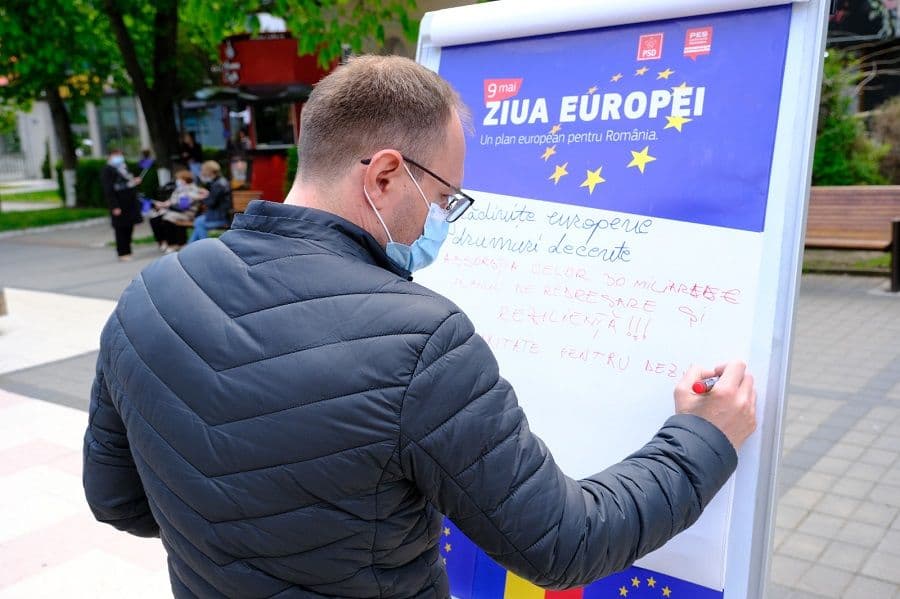 PSD
PES
9 mai
ZIUA EUROPEI
Un plan european pentru România.
europene
drumuri decente
ABSORȚIA CELOR 30 MILIARDE €
DE REDRESARE ȘI
REZILIENȚĂ !!!
PENTRU